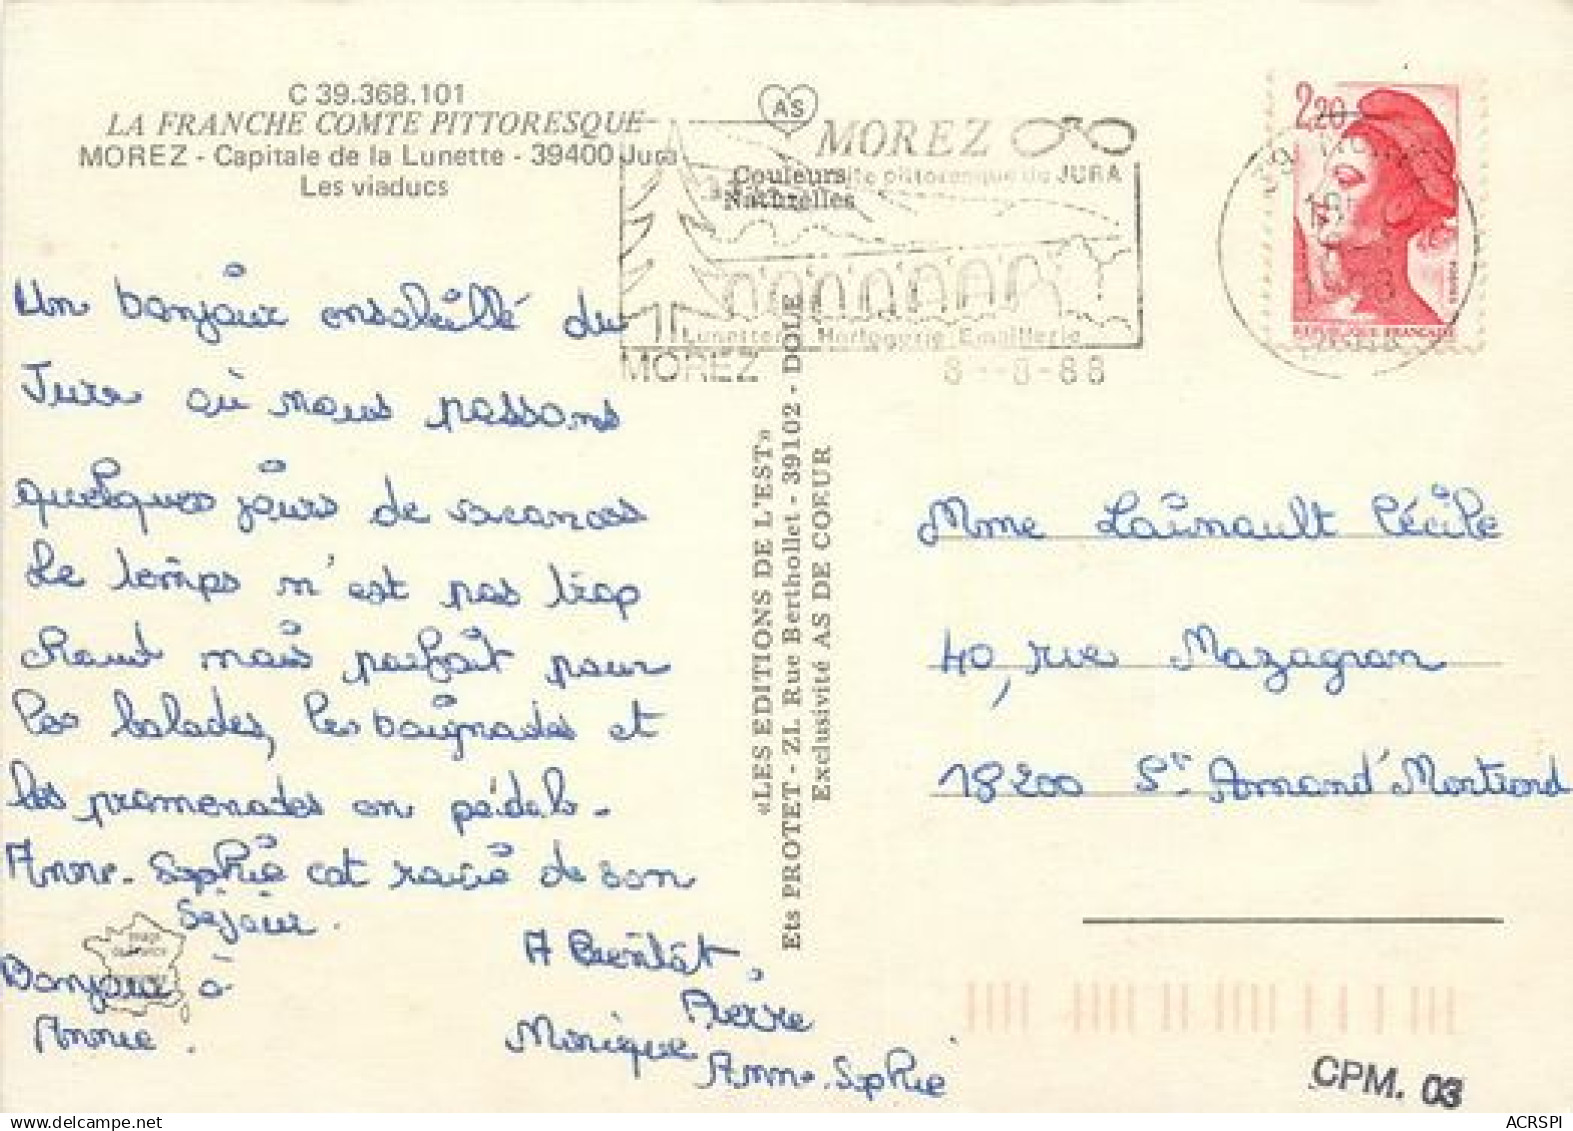 C 39.368.101
LA FRANCHE COMTE PITTORESQUE
MOREZ - Capitale de la Lunette - 39400 Jura
Les viaducs
AS
MOREZ
Couleurs
Naturelles
site pittoresque du JURA
Lunetterie Horlogerie Emaillerie
MOREZ
8-8-88
2,20
REPUBLIQUE FRANÇAISE
Un bonjour ensoleillé du
Jura où nous passons
quelques jours de vacances
Le temps n'est pas trop
chaud mais parfait pour
les balades, les baignades et
les promenades en pédalo.
Anne-Sophie est ravie de son
séjour.
Bonjour à
Annie.
A bientôt,
Pierre
Monique
Anne-Sophie
«LES EDITIONS DE L'EST»
Ets PROTET - ZI. Rue Berthollet - 39102 - DOLE
Exclusivité AS DE COEUR
Mme Launault Cécile
40, rue Mazagran
18200 St Amand Montrond
CPM. 03
ACRSPI